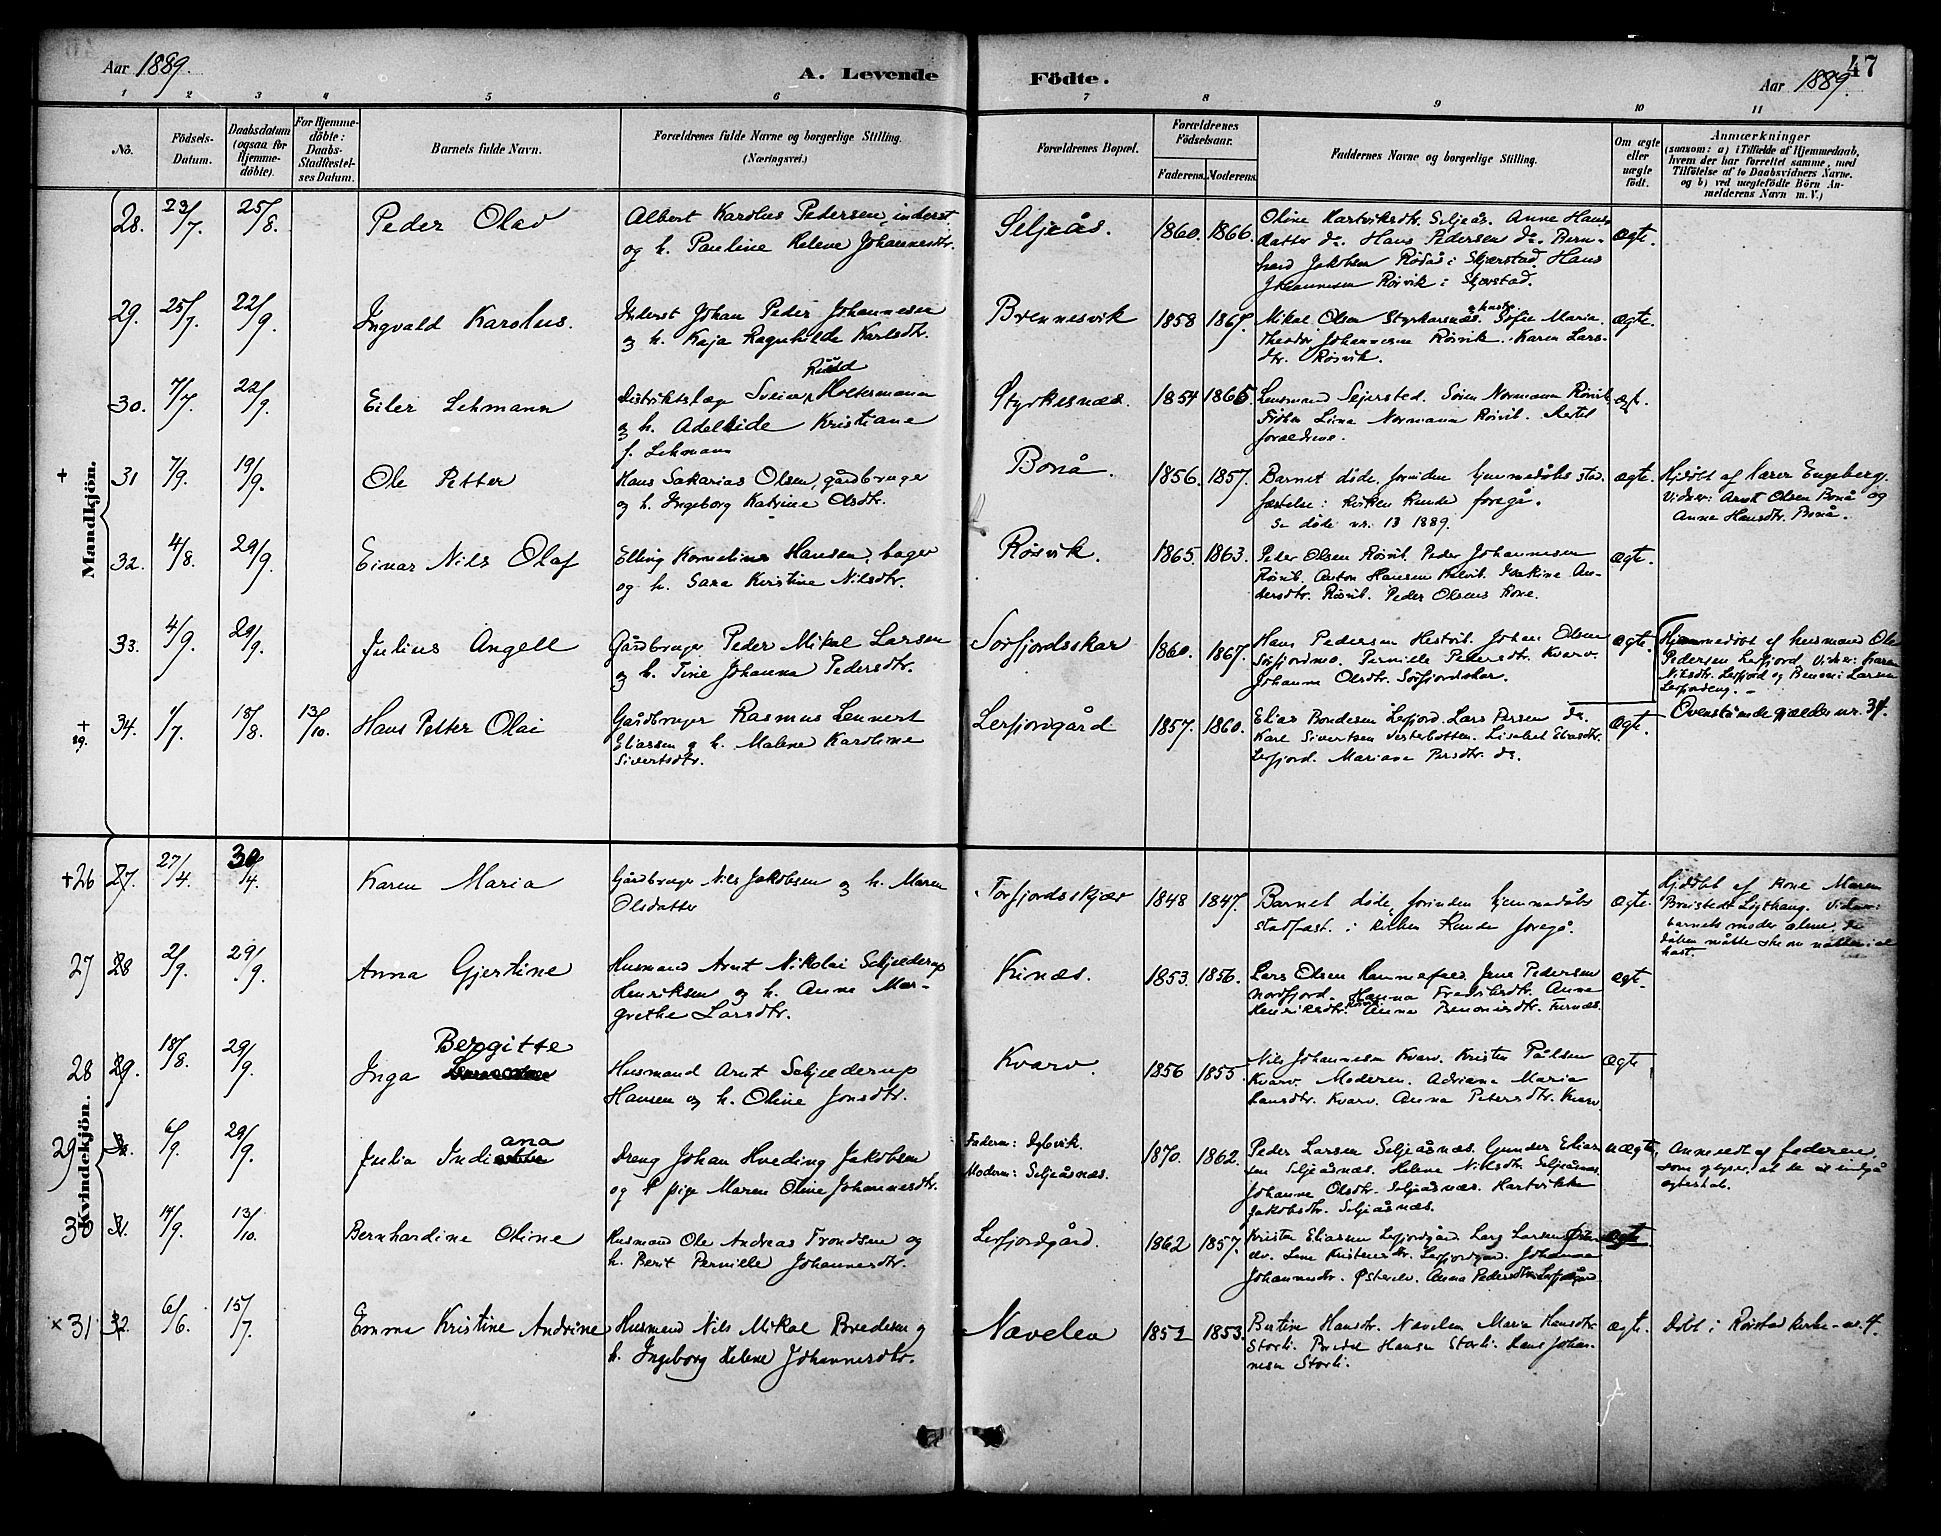 Aar 1889.
A. Levende
Födte.
47
Aar 1889.
1 2 3 4 5 6 7 8 9 10 11
No.
Födsels-
Datum.
Daabsdatum
(ogsaa for
Hjemme-
döbte).
For Hjemme-
döbte:
Daabs-
Stadfæstel-
ses Datum.
Barnets fulde Navn.
Forældrenes fulde Navne og borgerlige Stilling.
(Næringsvei.)
Forældrenes Bopæl.
Forældrenes
Födselsaar.
Faderens.
Moderens.
Faddernes Navne og borgerlige Stilling.
Om ægte
eller
uægte
født.
Anmærkninger
(saasom: a) i Tilfælde af Hjemmedaab,
hvem der har forrettet samme, med
Tilföielse af to Daabsvidners Navne.
og b) ved uægtefödte Börn An-
melderens Navn m.V.)
Mandkjön.
28. 23/7. 25/8. Peder Olav
Albert Karolus Pedersen, inderst
og h. Pauline Helene Johannesdtr.
Seljeås. 1860. 1866.
Oline Hartviksdtr. Seljeås. Anne Hans
datter do. Hans Pedersen do. Bern-
hard Jakobsen Rödås i Skjærstad. Hans
Johannesen Röivik i Skjærstad.
Ægte.
29. 25/7. 22/9. Ingvald Karolus.
Inderst Johan Peder Johannesen
og h. Kaja Ragnhilde Karlsdtr.
Brennesvik 1858
Mikal Olsen Styrkesnæs. Sofie Maria.
Theodor Johannesen Röisvik. Karen Lars-
dtr. Röisvik.
Ægte.
30. 7/7. 22/9. Eiler Lehmann
Distriktslæge Svein Holtermann
og h. Adelheide Kristiane
f. Lehmann
Styrkesnæs. 1854 1865
Lensmand Sejersted. Sören Normann Röisvik
Normann Röisvik.
forældrene.
Ægt.
+ 31 7/9. 19/9. Ole Petter
Hans Sakarias Olsen, gårdbruger
og h. Ingeborg Katrine Olsdtr.
Bonå. 1856. 1857.
Barnet døde, forinden hjemmedåbs stad
fæstelse i kirken kunde foregå.
Se døde nr. 13 1889.
ægte.
Hjdøbt af Karen Engeberg.
Vidner: Arnt Olsen Bonå og
Anne Hansdtr. Bonå.
32. 4/8. 29/9. Einar Nils Olaf
Elling Kornelius Hansen, bager
og h. Sara Kristine Nilsdtr.
Röisvik. 1865. 1863.
Peder Olsen Röisvik. Peder Johannesen
Röisvik. Anton Hansen Kalvik. Isakine An-
dersdtr. Röisvik. Peder Olsens Kone.
Ægte.
33. 4/9. 29/9. Julius Angell
Gårdbruger Peder Mikal Larsen
og h. Tine Johanna Pedersdtr.
Sörfjordsskar 1860. 1867.
Hans Pedersen Hestvik. Johan Olsen
Sörfjordmo. Pernille Pedersdtr. Kvarv.
Johanna Olsdtr. Sörfjordskar.
Ægte.
Hjemmedøbt af husmand Ole
Pedersen Lerfjord. Vidner: Karen
Nilsdtr. Lerfjord og Benoni Larsen
Lerfjordeng. –
+ 29. 34. 1/7. 18/8. 13/10. Hans Petter Olai
Gårdbruger Rasmus Lennert
Eliassen og h. Malene Karoline
Sivertsdtr.
Lerfjordgård 1857. 1860.
Elias Bondesen Lerfjord. Lars Persen do.
Karl Sivertsen Vesterbotten. Lisabet Eliasdtr.
Lerfjord. Mariane Persdtr. do.
Ægt.
Ovenstående gjælder nr. 34.
Kvindekjön.
+26 27. 27/4. 30/4. Karen Maria
Gårdbruger Nils Jakobsen og h. Maren
Olsdatter
Torfjordsskjær 1848 1847.
Barnet døde, forinden hjemmedåbs
stadfæst. i kirken kunde foregå.
Ægte.
Hjdøbt af Kone Maren
Breistedt Løgthaug. Vidne:
barnets moder alene, da
dåben måtte ske om natten i al
hast.
27 28 2/9. 29/9. Anna Gjertine
Husmand Arnt Nikolai Schjelderup
Henriksen og h. Anne Mar-
grethe Larsdtr.
Kines. 1853. 1856.
Lars Olsen Hammefald. Jane Pedersen
Nordfjord. Hanna Fredriksdtr. Anne
Henriksdtr. Anna Benonisdtr. Furnæs.
ægt.
28 29. 18/8. 29/9. Inga Berggitte
Husmand Arnt Schjelderup
Hansen og h. Oline Jonsdtr.
Kvarv. 1856 1855.
Nils Johannesen Kvarv. Kristen Pålsen
Kvarv. Moderen. Adriana Maria
Hansdtr. Kvarv. Anna Petersdtr. Kvarv.
Ægte
29 6/9. 29/9. Julia Indiana
Dreng Johan Hveding Jakobsen
og pige Maren Oline Johannesdtr.
Faderen: Dybvik.
Moderen: Seljeåsnæs.
1870. 1862.
Peder Larsen Seljeåsnæs. Gunder Elias-
sen Seljeåsnæs. Helene Nilsdtr. Seljeåsnæs.
Johanne Olsdtr. Seljeåsnæs. Hartvikke
Jakobsdtr. Seljeåsnæs.
uægte
Anmeldt af faderen,
som oplyser, at de vil indgå
ægteskab.
30 31. 14/9. 13/10. Bernhardine Oline
Husmand Ole Andreas Trondsen og
h. Berit Pernille Johannesdtr.
Lerfjordgård. 1862 1857.
Kristen Eliassen Lerfjordgård. Lars Larsen Öster-
elv. Lene Kristensdtr. Lerfjordgård. Johanna
Johannesdtr. Østerelv. Anna Pedersdtr. Lerfjordgård
ægte.
× 31 32. 6/6. 15/7. Emma Kristine Andrine
Husmand Nils Mikal Bredesen og
h. Ingeborg Helene Johannesdtr.
Nævelen 1852 1853.
Bertine Hansdtr. Nævelen Maria Hansdtr.
Storli. Predel Hansen Storli. Hans Johan-
nesen Storli.
ægte.
Døbt i Röistad kirke – nr. 4.